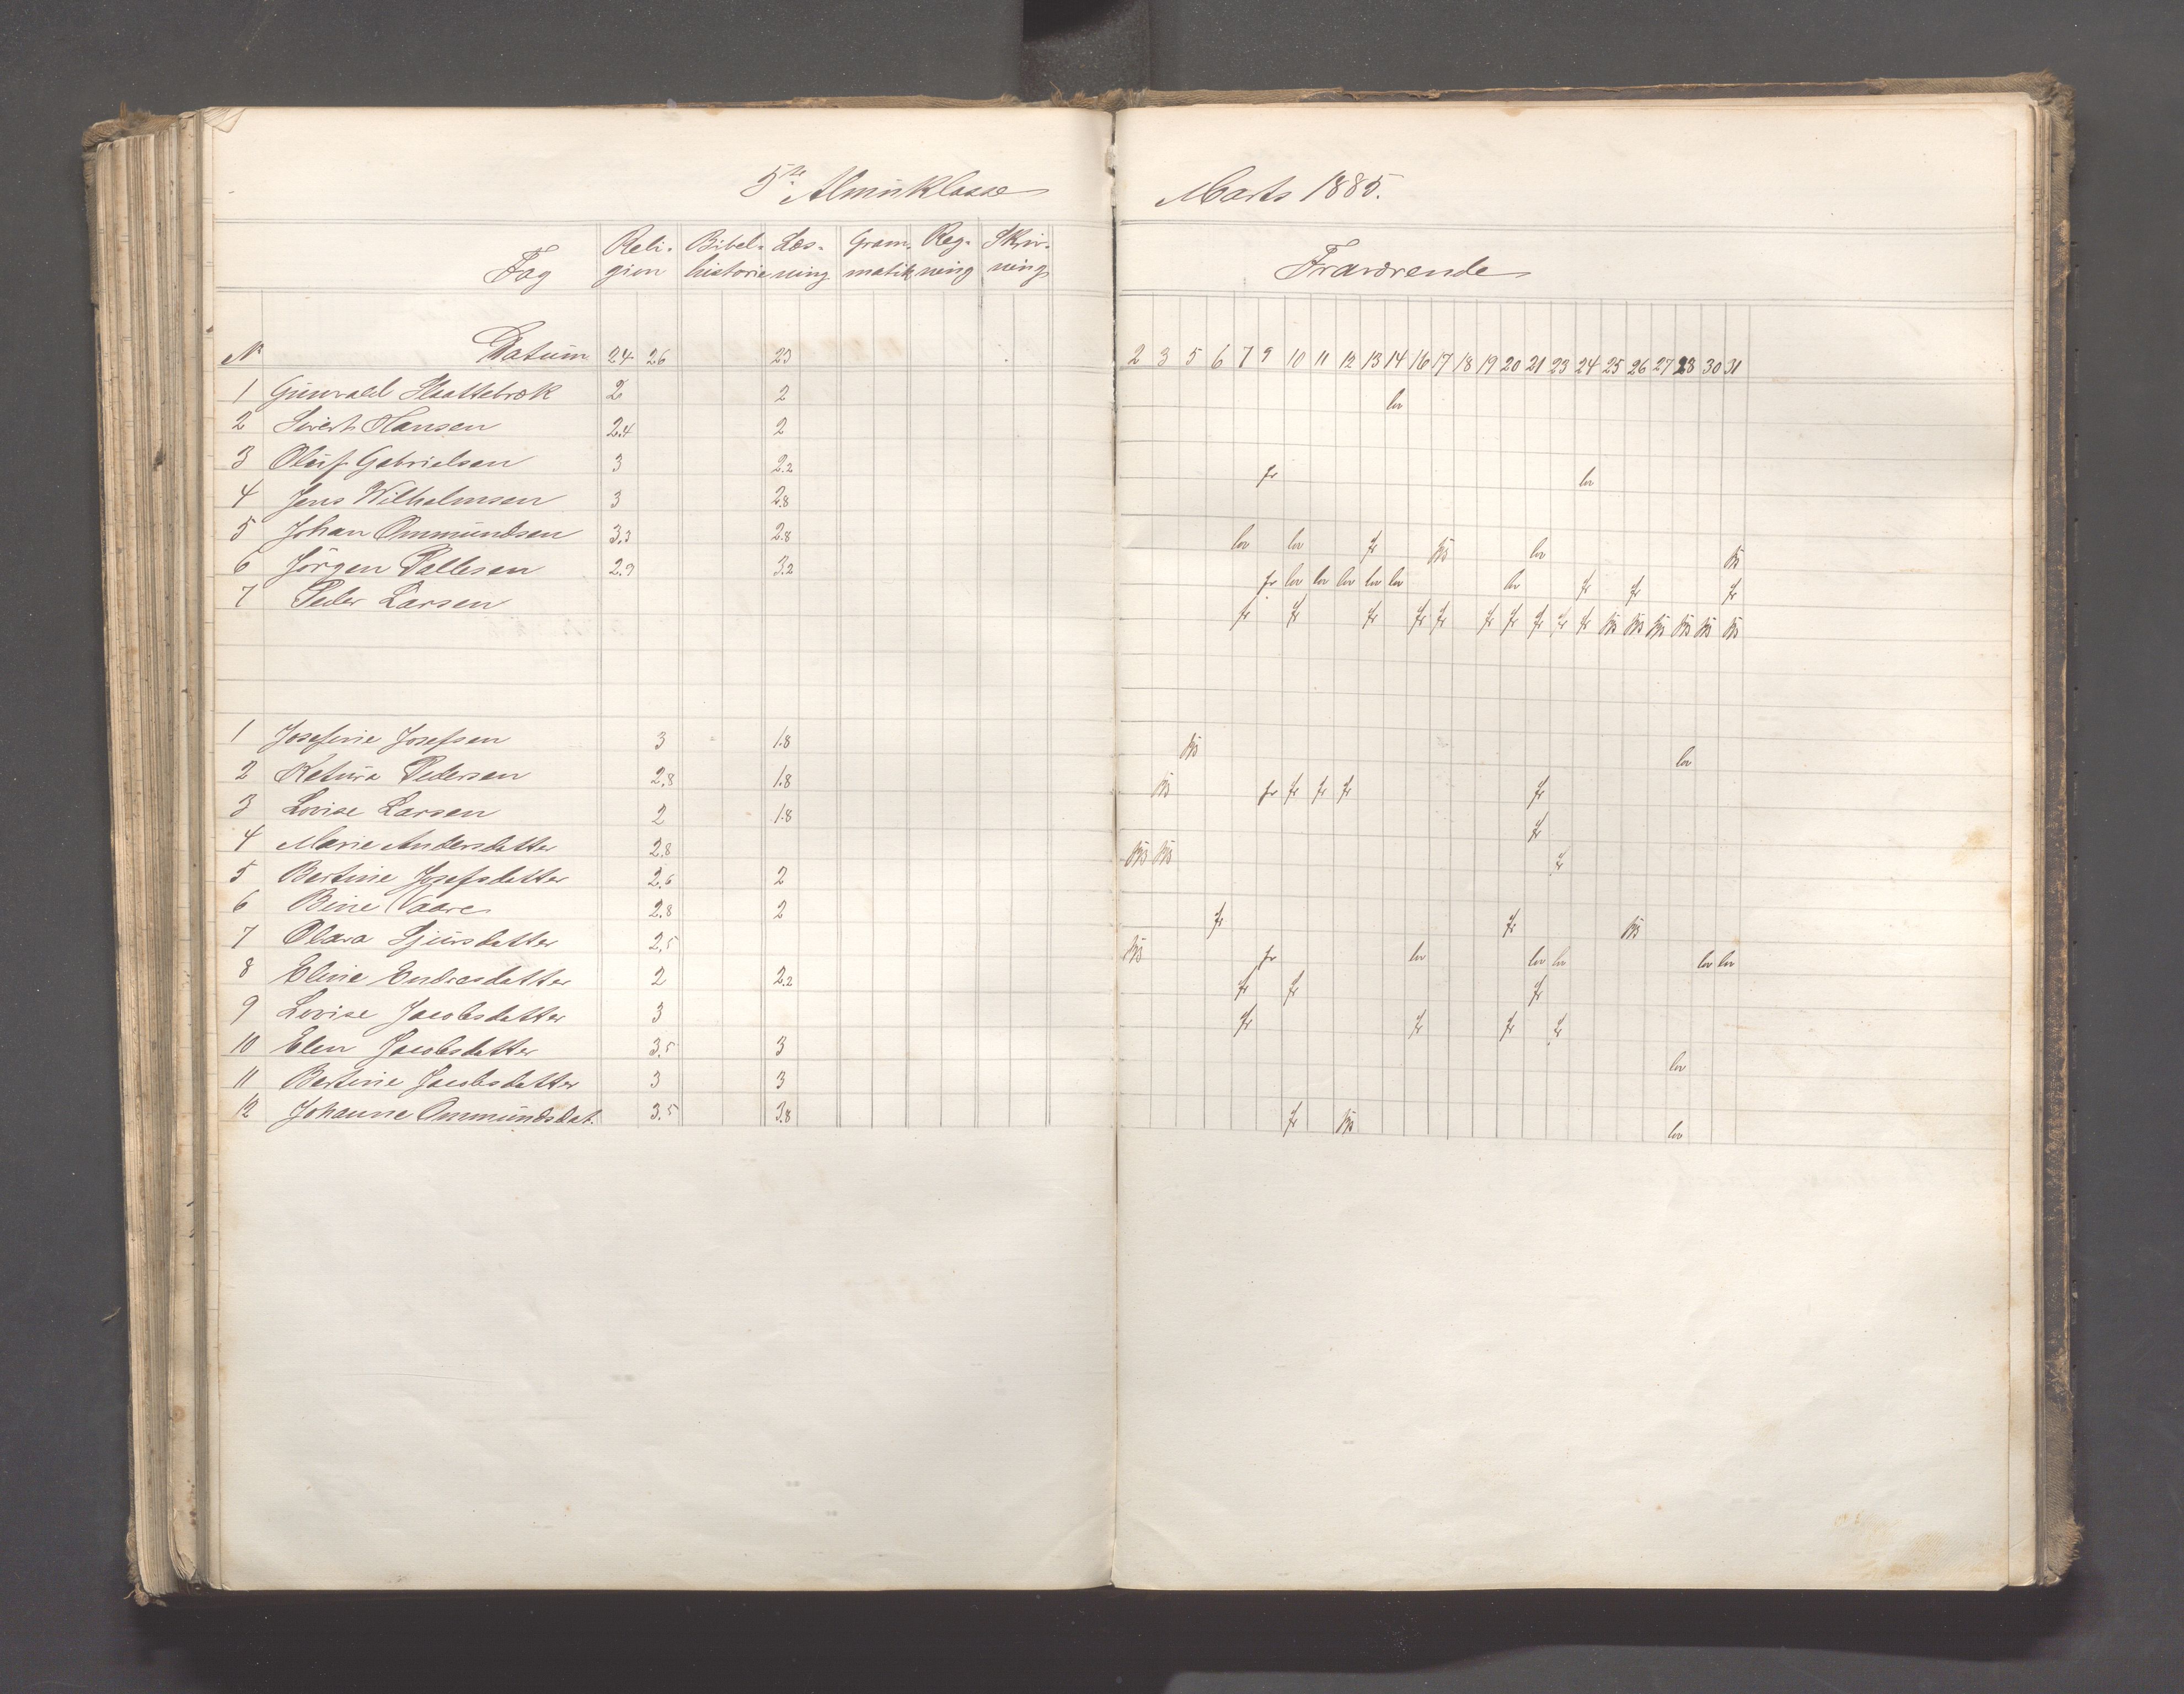 5te Almüklasse
Marts 1885.
Fag Reli- Bibel- Læs- Gram- Reg- Skriv-
gion historie ning matik ning ning
Fraværende
No Datum 24 26 23
2 3 5 6 7 9 10 11 12 13 14 16 17 18 19 20 21 23 24 25 26 27 28 30 31
1 Gunvald Slaattebræk 2 2 lov
2 Sivert Hansen 2.4 2
3 Oluf Gabrielsen 3 2.2 fr lov
4 Jens Wilhelmsen 3 2.8
5 Johan Ommundsen 3.3 2.8 lov lov fr lov
6 Jörgen Pallesen 2.9 3.2 fr lov lov lov lov lov lov fr fr fr
7 Peder Larsen fr fr fr fr fr fr fr fr fr fr
1 Josefine Josefsen 3 1.8 lov
2 Ketura Pedersen 2.8 1.8 fr fr fr fr fr
3 Lovise Larsen 2 1.8 fr
4 Marie Andersdatter 2.8 fr
5 Bertine Josefsdatter 2.6 2
6 Bine Vaare 2.8 2 fr fr
7 Olava Sjursdatter 2.5 fr lov lov lov lov lov
8 Eline Endresdatter 2 2.2 fr fr fr
9 Lovise Jacobsdatter 3 fr fr fr fr
10 Elen Jacobsdatter 3.5 3 lov
11 Bertine Jacobsdatter 3 3
12 Johanne Ommundsdat. 3.5 3.8 fr lov